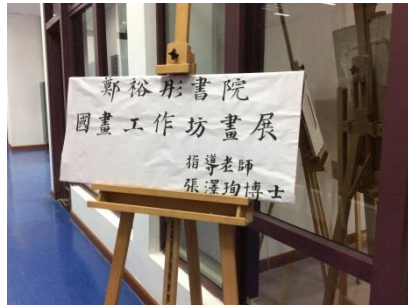 鄭裕彤書院
國畫工作坊畫展
指導老師
張澤珣博士